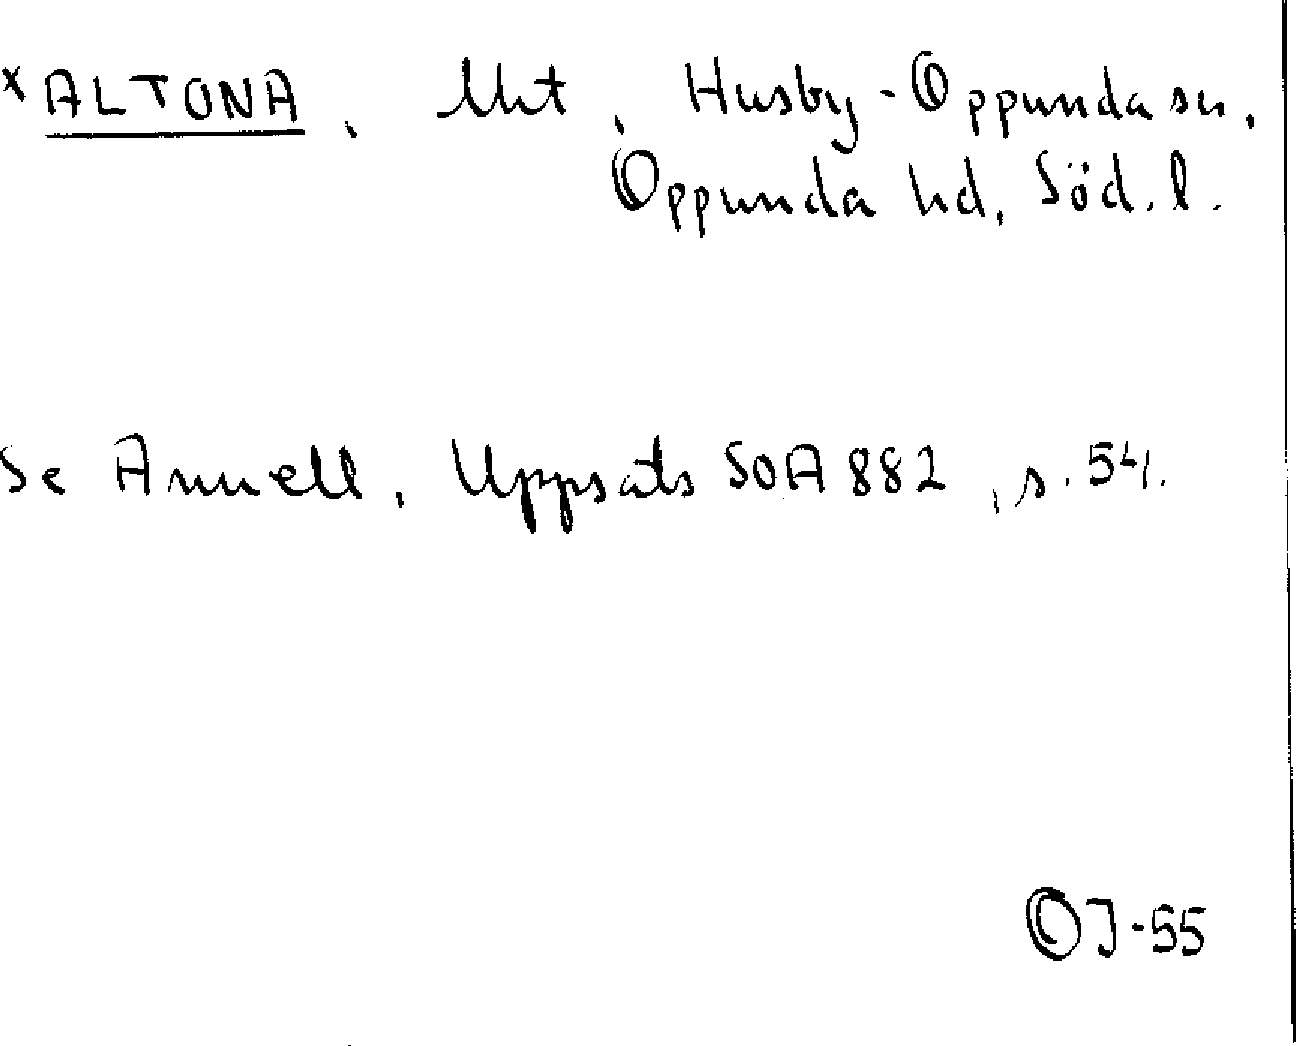 *ALTONA, lht, Husby-Oppunda sn,
Oppunda hd, Söd. l.
Se Annell, Uppsats SOA 882, s. 54.
OJ-55